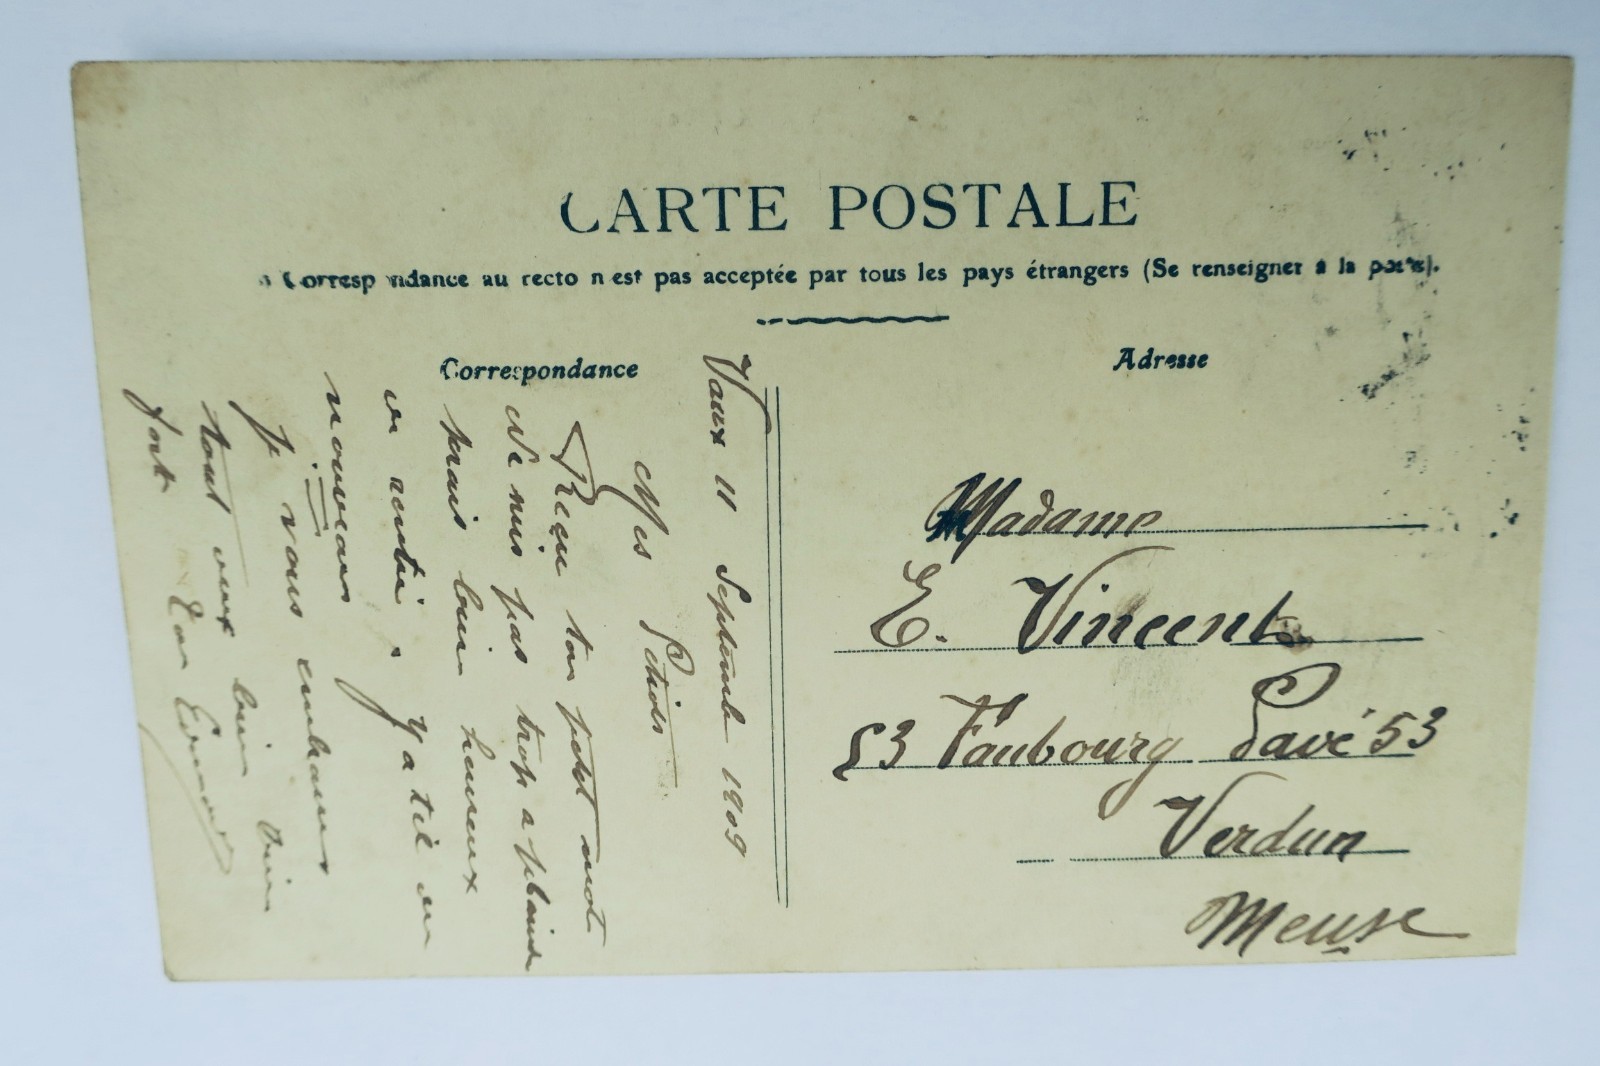 CARTE POSTALE
Correspondance au recto n'est pas acceptée par tous les pays étrangers (Se renseigner à la poste).
Correspondance
Vaux 11 Septembre 1909
Mes Petiots
Reçu ton petit mot
Ne suis pas trop a plaindre
mais bien heureux
en sortie, Y a til du
nouveau
Je vous embrasse
tout deux bien bien
fort Ton
Adresse
Madame
E. Vincent
53 Faubourg Pavé 53
Verdun
Meuse